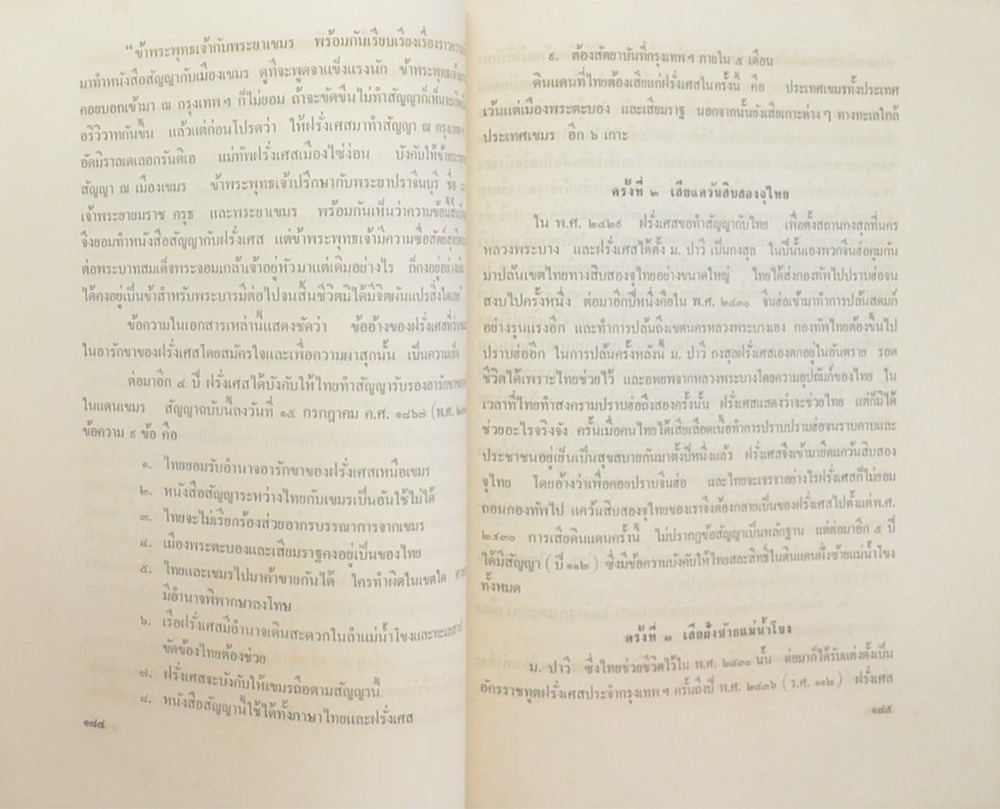 “ข้าพระพุทธเจ้ากับพระยาเขมร พร้อมกันเรียบเรียงเรื่องราว
มาทำหนังสือสัญญากับเมืองเขมร ดูที่จะพูดจาแข็งแรงนัก ข้าพระพุทธ
คอยบอกเข้ามา ณ กรุงเทพฯ ก็ไม่ยอม ถ้าจะขัดขืนไม่ทำสัญญาก็เห็นจะ
อริวิวาทกันขึ้น แล้วแต่ก่อนโปรดว่า ให้ฝรั่งเศสมาทำสัญญา ณ กรุงเทพฯ
อัดมิราลเดเลอกรันดิเอ แม่ทัพฝรั่งเศสเมืองไซ่ง่อน บังคับให้ข้าพระพุทธ
สัญญา ณ เมืองเขมร ข้าพระพุทธเจ้าปรึกษากับพระยาปราจีนบุรี ชื่อ
เจ้าพระยายมราช ครุธ และพระยาเขมร พร้อมกันเห็นว่าความข้อนี้
จึงยอมทำหนังสือสัญญากับฝรั่งเศส แต่ข้าพระพุทธเจ้ามีความซื่อสัตย์สุจริต
ต่อพระบาทสมเด็จพระจอมเกล้าเจ้าอยู่หัวมาแต่เดิมอย่างไร ก็คงอยู่อย่างนั้น
ได้คงอยู่เป็นข้าสำหรับพระบารมีต่อไปจนสิ้นชีวิตมิได้มีจิตผันแปรสิ่งใดเลย
ข้อความในเอกสารเหล่านี้แสดงชัดว่า ข้ออ้างของฝรั่งเศสที่ว่า
ในอารักขาของฝรั่งเศสโดยสมัครใจและเพื่อความผาสุกนั้น เป็นความเท็จ
ต่อมาอีก ๔ ปี ฝรั่งเศสได้บังคับให้ไทยทำสัญญารับรองอารักขาของ
ในแดนเขมร สัญญาฉบับนี้ลงวันที่ ๑๕ กรกฎาคม ค.ศ. ๑๘๖๗ (พ.ศ.
ข้อความ ๙ ข้อ คือ
๑. ไทยยอมรับอำนาจอารักขาของฝรั่งเศสเหนือเขมร
๒. หนังสือสัญญาระหว่างไทยกับเขมรเป็นอันใช้ไม่ได้
๓. ไทยจะไม่เรียกร้องส่วยอากรบรรณาการจากเขมร
๔. เมืองพระตะบองและเสียมราฐคงอยู่เป็นของไทย
๕. ไทยและเขมรไปมาค้าขายกันได้ ใครทำผิดในเขตใด
มีอำนาจพิพากษาลงโทษ
๖. เรือฝรั่งเศสมีอำนาจเดินสะดวกในลำแม่น้ำโขงและทะเลสาป
ขัดข้องไทยต้องช่วย
๗. ฝรั่งเศสจะบังคับให้เขมรถือตามสัญญานี้
๘. หนังสือสัญญานี้ใช้ได้ทั้งภาษาไทยและฝรั่งเศส
๑๘๔
๙. ต้องสัตยาบันที่กรุงเทพฯ ภายใน ๕ เดือน
ดินแดนที่ไทยต้องเสียแก่ฝรั่งเศสในครั้งนี้ คือ ประเทศเขมรทั้งประเทศ
เว้นแต่เมืองพระตะบอง และเสียมราฐ นอกจากนั้นยังเสียเกาะต่าง ๆ ทางทะเลใกล้
ประเทศเขมร อีก ๖ เกาะ
ครั้งที่ ๒ เสียแคว้นสิบสองจุไทย
ใน พ.ศ. ๒๔๒๙ ฝรั่งเศสขอทำสัญญากับไทย เพื่อตั้งสถานกงสุลที่นคร
หลวงพระบาง และฝรั่งเศสได้ตั้ง ม. ปาวี เป็นกงสุล ในปีนั้นเองพวกจีนฮ่อคุมกัน
มาปล้นเขตไทยทางสิบสองจุไทยอย่างขนาดใหญ่ ไทยได้ส่งกองทัพไปปราบฮ่อจน
สงบไปครั้งหนึ่ง ต่อมาอีกปีหนึ่งคือใน พ.ศ. ๒๔๓๐ จีนฮ่อเข้ามาทำการปล้นสดมภ์
อย่างรุนแรงอีก และทำการปล้นถึงเขตนครหลวงพระบางเอง กองทัพไทยต้องขึ้นไป
ปราบฮ่ออีก ในการปล้นครั้งหลังนี้ ม. ปาวี กงสุลฝรั่งเศสเองตกอยู่ในอันตราย รอด
ชีวิตได้เพราะไทยช่วยไว้ และอพยพจากหลวงพระบางโดยความอุปถัมภ์ของไทย ใน
เวลาที่ไทยทำสงครามปราบฮ่อถึงสองครั้งนั้น ฝรั่งเศสแสดงว่าจะช่วยไทย แต่ก็มิได้
ช่วยอะไรจริงจัง ครั้นเมื่อคนไทยได้เสียเลือดเนื้อทำการปราบปรามฮ่อจนราบคาบและ
ประชาชนอยู่เย็นเป็นสุขสบายกันมาตั้งปีหนึ่งแล้ว ฝรั่งเศสจึงเข้ามายึดแคว้นสิบสอง
จุไทย โดยอ้างว่าเพื่อคอยปราบจีนฮ่อ และไทยจะเจรจาอย่างไรฝรั่งเศสก็ไม่ยอม
ถอนกองทัพไป แคว้นสิบสองจุไทยของเราจึงต้องกลายเป็นของฝรั่งเศสไปตั้งแต่พ.ศ.
๒๔๓๐ การเสียดินแดนครั้งนี้ ไม่ปรากฏข้อสัญญาเป็นหลักฐาน แต่ต่อมาอีก ๕ ปี
ได้มีสัญญา (ปี ๑๑๒) ซึ่งมีข้อความบังคับให้ไทยสละสิทธิ์ในดินแดนฝั่งซ้ายแม่น้ำโขง
ทั้งหมด
ครั้งที่ ๓ เสียฝั่งซ้ายแม่น้ำโขง
ม. ปาวี ซึ่งไทยช่วยชีวิตไว้ใน พ.ศ. ๒๔๓๐ นั้น ต่อมาก็ได้รับแต่งตั้งเป็น
อัครราชทูตฝรั่งเศสประจำกรุงเทพฯ ครั้นถึงปี พ.ศ. ๒๔๓๖ (ร.ศ. ๑๑๒) ฝรั่งเศส
๑๘๕